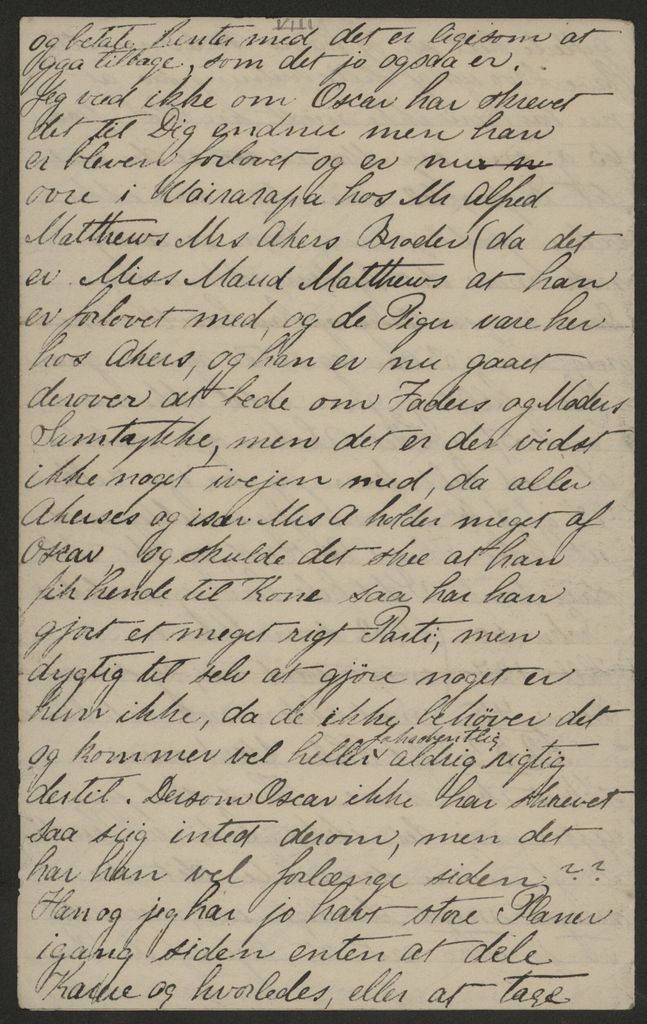 VIII
og betale Renter med det er ligesom at
gaa tilbage, som det jo ogsaa er.
Jeg ved ikke om Oscar har skrevet
det til Dig endnu men han
er bleven forlovet og er nu
ovre i Wairarapa hos Mr Alfred
Matthews Mrs Akers Broder (da det
er Miss Maud Matthews at han
er forlovet med, og de Piger vare her
hos Akers, og han er nu gaaet
derover at bede om Faders og Moders
Samtykke, men det er der vidst
ikke noget ivejen med, da alle
Akerses og især Mrs A holder meget af
Oscar, og skulde det skee at han
fik hende til Kone saa har han
gjort et meget rigt Parti, men
dygtig til selv at gjöre noget er
hun ikke, da de ikke behöver det
og kommer vel heller forhaabentlig aldrig rigtig
dertil. Dersom Oscar ikke har skrevet
saa siig intet derom, men det
har han vel forlænge siden ??
Han og jeg har jo havt store Planer
igang siden enten at dele
og hvorledes, eller at tage